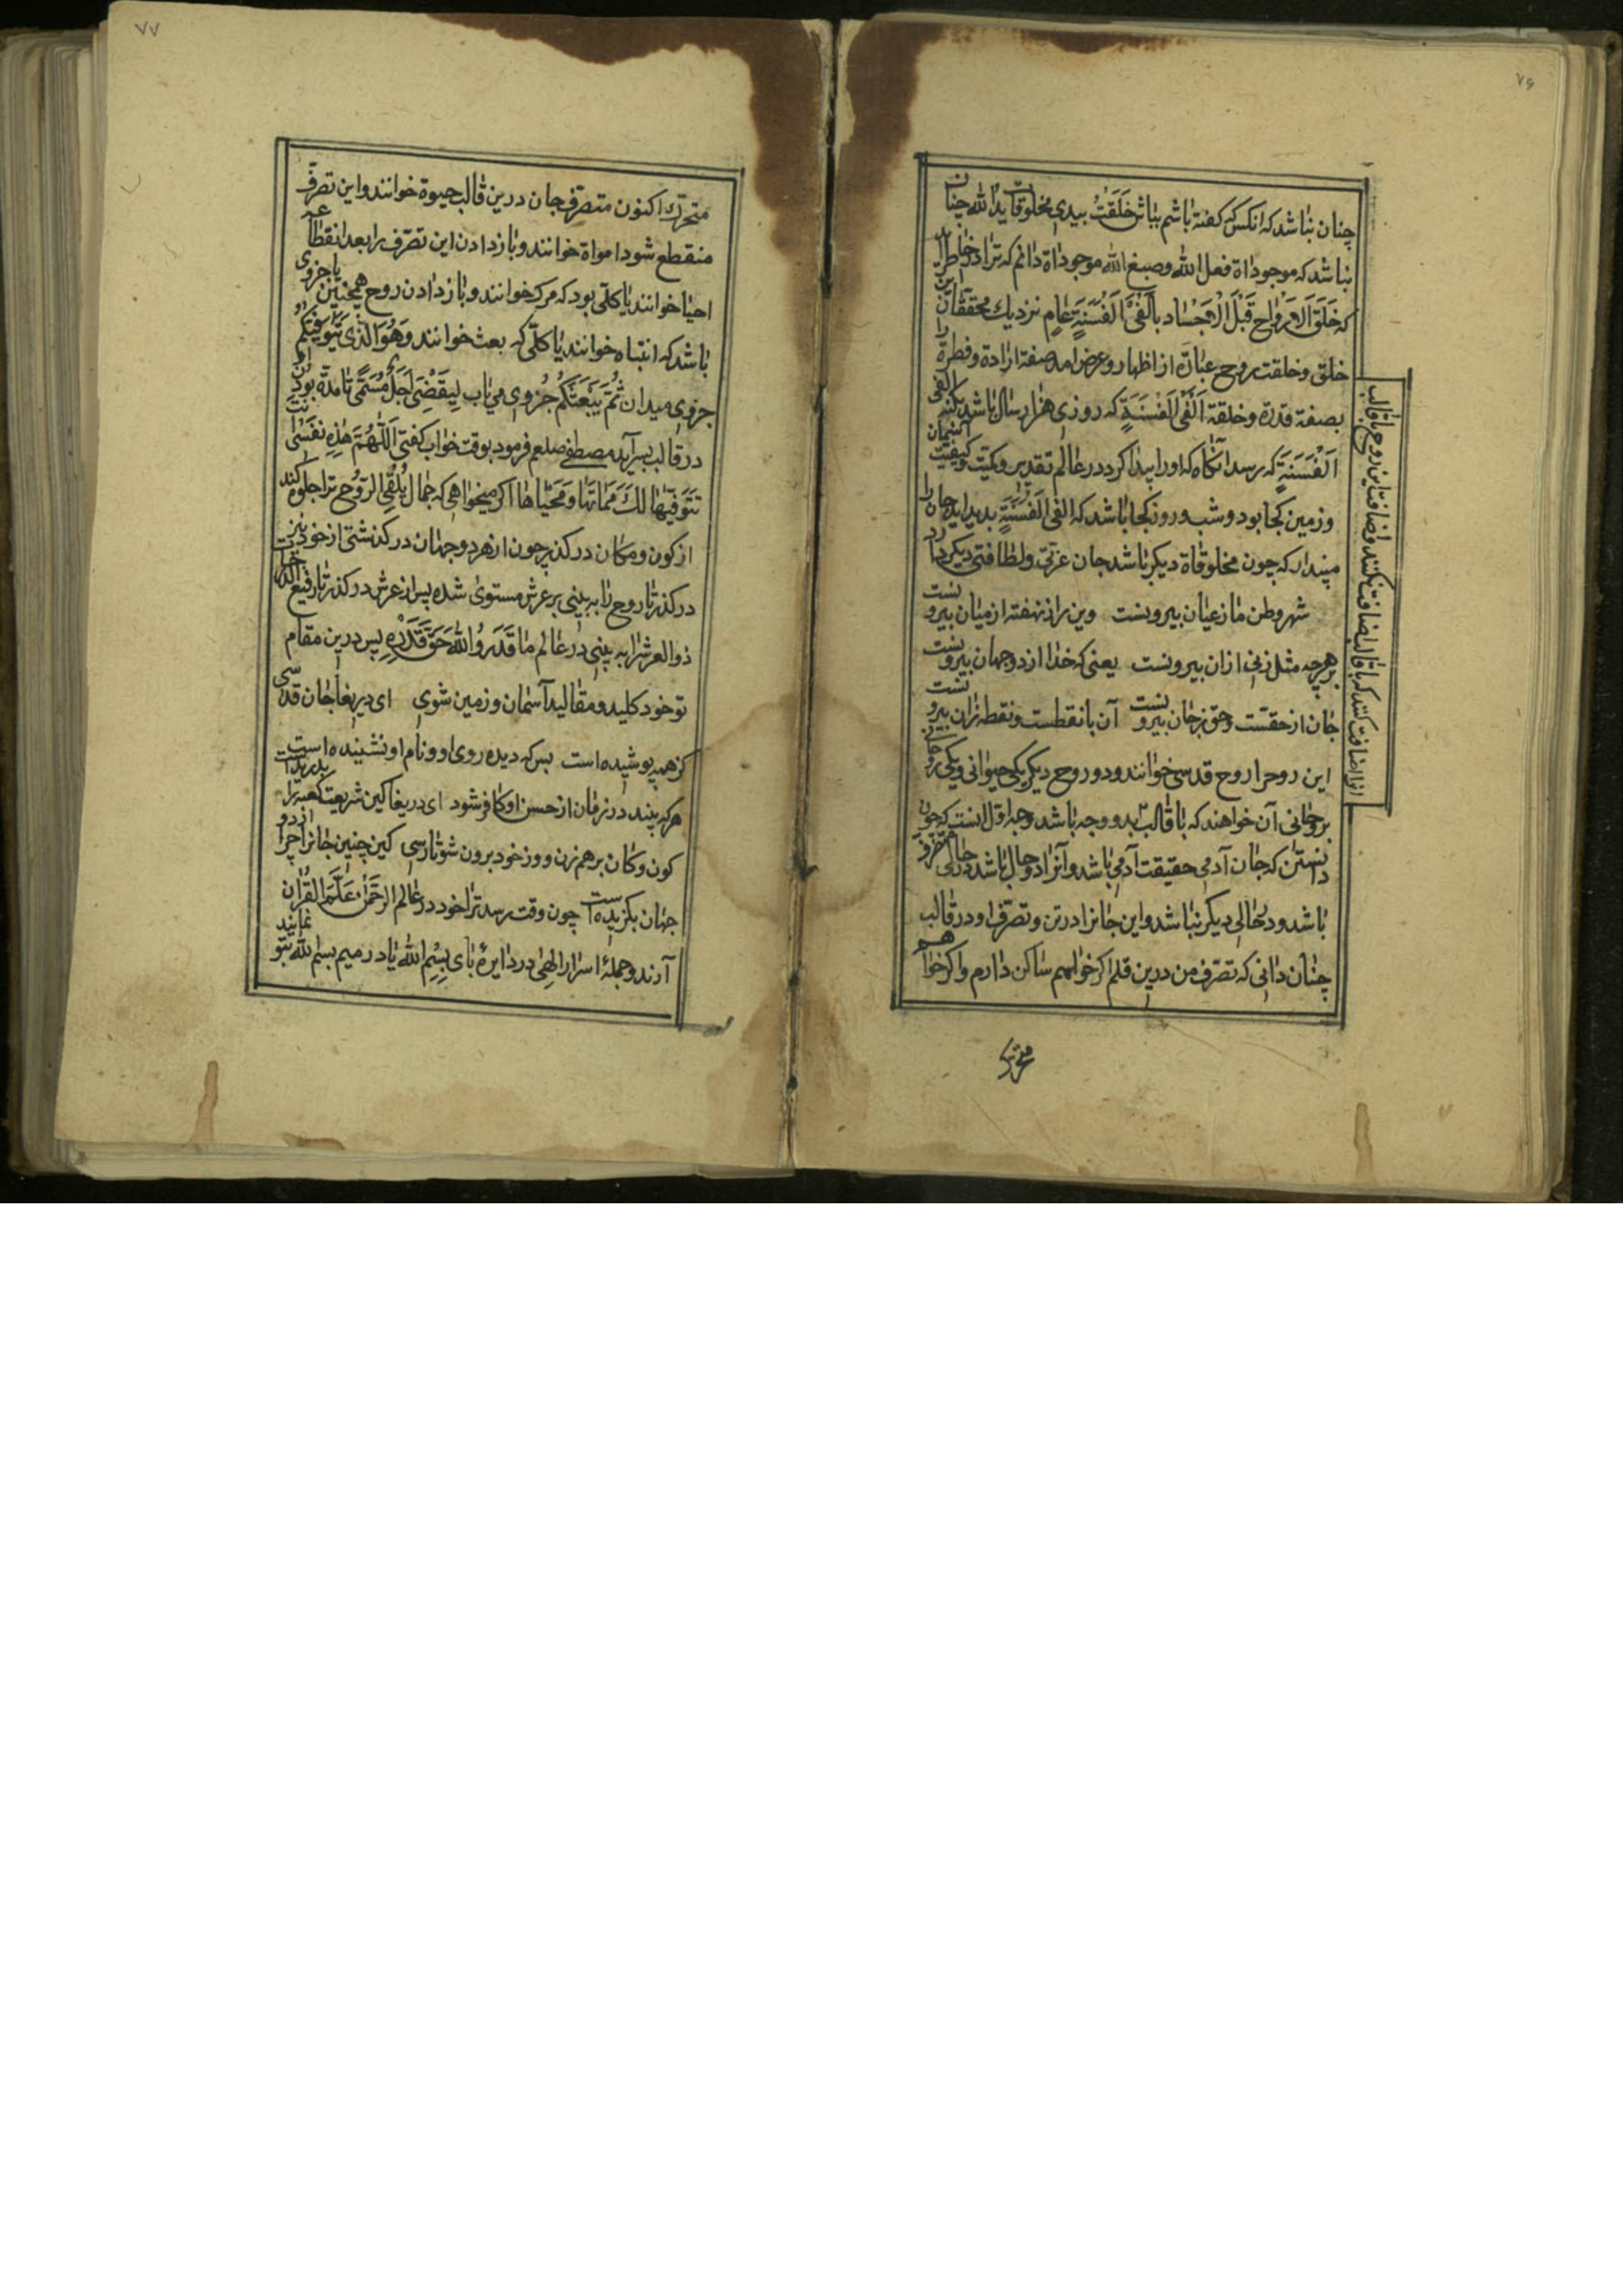 ٧٦
چنان نباشد که انکس که کفته باشم بباش خَلَقَتْ بیدی مخلوقات یدالله چنان
نباشد که موجوداة فعل الله وصبغ الله موجوداة دانم که ترا در خاطر آید
که خَلَقَ الاَرْواح قَبْلَ الْاَجْسٰاد بِاَلْفَیْ اَلْفَ سَنَةٍ عٰامٍ نزدیك محققان این
خلق وخلقت روح عبارة از اظهار وعرض امد صفة ارادة وفطرة را
بصفة قدرة وخلقة اَلْفَیْ اَلْفَ سَنَةٍ که روزی هزار سال باشد یکنه الفی
اَلْفَ سَنَةٍ که رسد آنکاه که اورا پیدا کرد در عالم تقدیر وکمیّت وکیفیّت آسمان
وزمین کجا بود وشب وروز کجا باشد که الفی اَلْفَ سَنَةٍ بدید اید جان را
مپندار که چون مخلوقاة دیکر باشد جان عزتی ولطافتی دیکر دارد
شهر وطن ما زعیان بیرونست وین راز نهفته از میان بیرونست
برهرچه مثل زنی ازان بیرونست یعنی که خدا از دوجهان بیرونست
جان از حقست وحق زجان بیرونست آن با نقطست ونقطه زان بیرونست
این روحرا روح قدسی خوانند ودو روح دیکر یکی حیوانی ویکی روحانی
بروحانی آن خواهند که با قالب بدو وجه باشد وجه اوّل انست که چون
دانستن که جان آدمی حقیقت آدمی باشد وآنرا دو حال باشد در حالی متصرف
باشد ودر حالی دیکر نباشد واین جانرا در تن وتصرّف او در قالب
چنان دانی که تصرّف من درین قلم اکر خواهم ساکن دارم واکر خواهم
متحرّك
ازا اضافت کنند که باقالب اضافت نکنند وضافت این روح باقالب
٧٧
متحرّك اکنون متصرّف جان درین قالب حیوة خوانند واین تصرّف
منقطع شود امواة خوانند وباز دادن این تصرّف را بعد انقطاعه
احیا خوانند یا کلّی بود که مرک خوانند وباز دادن روح همچنین یا جزوی
باشد که انتباه خوانند یا کلّی که بعث خوانند وَهُوَ الَّذی یَتَوَفّیٰکُمْ
جزوی میدان ثُمَّ یَبْعَثُکُمْ جُزوی می یاب لِیَقْضٰی اَجَلٌ مُسَمًّی تا مدّة بودن
در قالب بسر آید مصطفی صلعم فرمود بوقت خواب کفتی اَللّٰهُمَّ هٰذِهِ نَفْسٰی
تَتَوَفّٰیهٰا لَكَ مَمٰاتُهٰا وَمَحْیٰاهٰا اکر میخواهی که جمال یُلْقِی الرُّوُحَ ترا جلوه کند
از کون ومکان درکذر چون از هردوجهان درکذشتی از خود نیز
درکذر تا روح را به بینی برعرش مستوی شده پس از عرش درکذر تا رفیع الدرجات
ذوالعرشرا به بینی در عالم ما قَدَرُوا اللّٰهَ حَقَّ قَدْرِهِ پس درین مقام
توخود کلید ومقالید آسمان وزمین شوی ای دریغا جان قدسی
کز همه پوشیده است بس که دیده روی او ونام او نشنیده است
هرکه بیند در زمان از حسن او کافر شود ای دریغا کین شریعت کعبه را بدریده است
کون وکان برهم زن ووز خود برون شو تا رسی کین چنین جانرا چرا از دو
جهان بکزیده است چون وقت رسد ترا خود در عالم اَلرَّحْمٰنُ عَلَّمَ الْقُرْاٰن
آرند وجملهٔ اسرار الٰهی در دایرهٔ بای بِسْمِ اللّٰه یا در میم بسم لله بتو نمایند